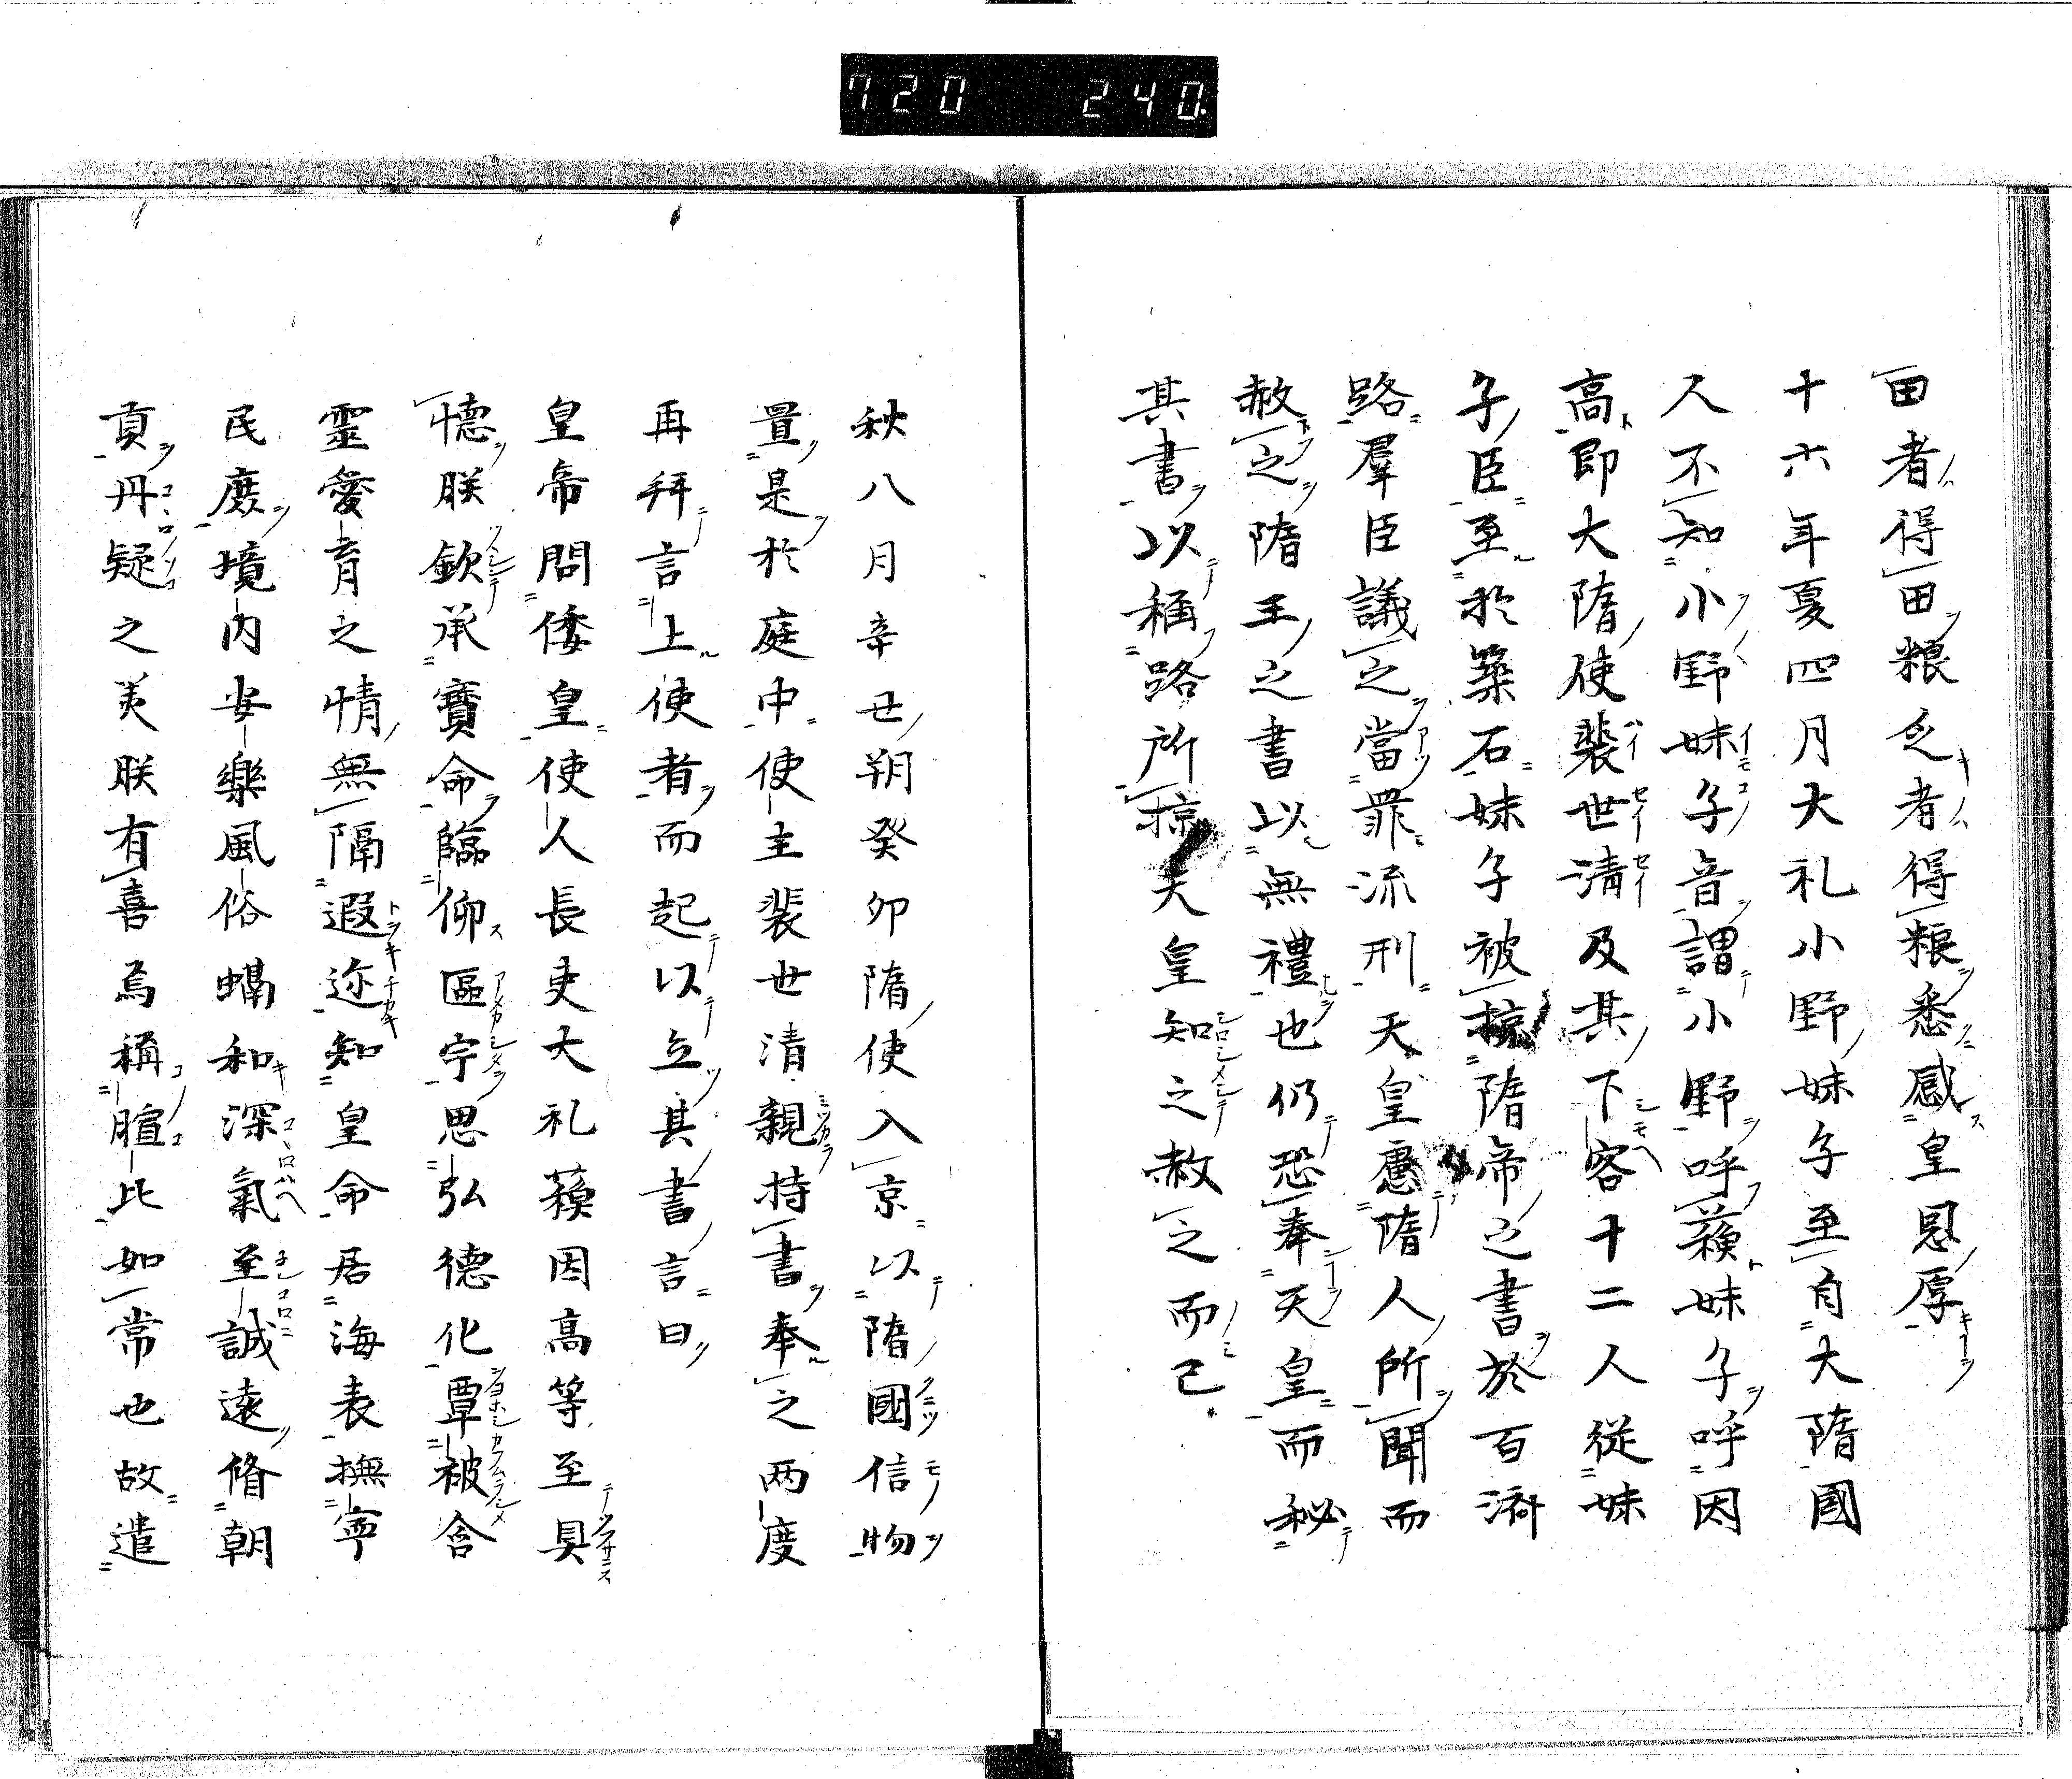 720 240.
田者得田粮乏者得粮悉感皇恩厚
十六年夏四月大礼小野妹子至自大隋國
人不知小野妹子音謂小野呼蘓妹子呼因
高即大隋使裴世淸及其下客十二人從妹
子臣至於築石妹子被掠隋帝之書於百濟
路羣臣議之當罪流刑天皇慮隋人所聞而
赦之隋王之書以無禮也仍恐奉天皇而秘
其書以稱路所掠天皇知之赦之而已
秋八月辛丑朔癸卯隋使入京以隋國信物
置是於庭中使主裴世清親持書奉之两度
再拜言上使者而起以立其書言曰
皇帝問倭皇使人長吏大礼蘓因高等至具
懐朕欽承寶命臨仰區宇思弘德化覃被含
靈愛育之情無隔遐迩知皇命居海表撫寧
民庻境内安樂風俗螎和深氣至誠遠脩朝
貢丹疑之美朕有喜焉稱暄比如常也故遣